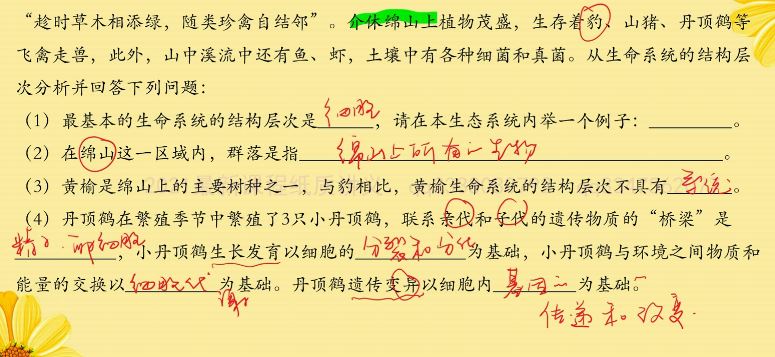 “趁时草木相添绿，随类珍禽自结邻”。介休绵山上植物茂盛，生存着豹、山猪、丹顶鹤等
飞禽走兽，此外，山中溪流中还有鱼、虾，土壤中有各种细菌和真菌。从生命系统的结构层
次分析并回答下列问题：
（1）最基本的生命系统的结构层次是细胞，请在本生态系统内举一个例子：________。
（2）在绵山这一区域内，群落是指绵山上所有的生物。
（3）黄榆是绵山上的主要树种之一，与豹相比，黄榆生命系统的结构层次不具有系统。
（4）丹顶鹤在繁殖季节中繁殖了3只小丹顶鹤，联系亲代和子代的遗传物质的“桥梁”是
精子、卵细胞，小丹顶鹤生长发育以细胞的分裂和分化为基础，小丹顶鹤与环境之间物质和
能量的交换以细胞代谢为基础。丹顶鹤遗传变异以细胞内基因的为基础。
传递和改变